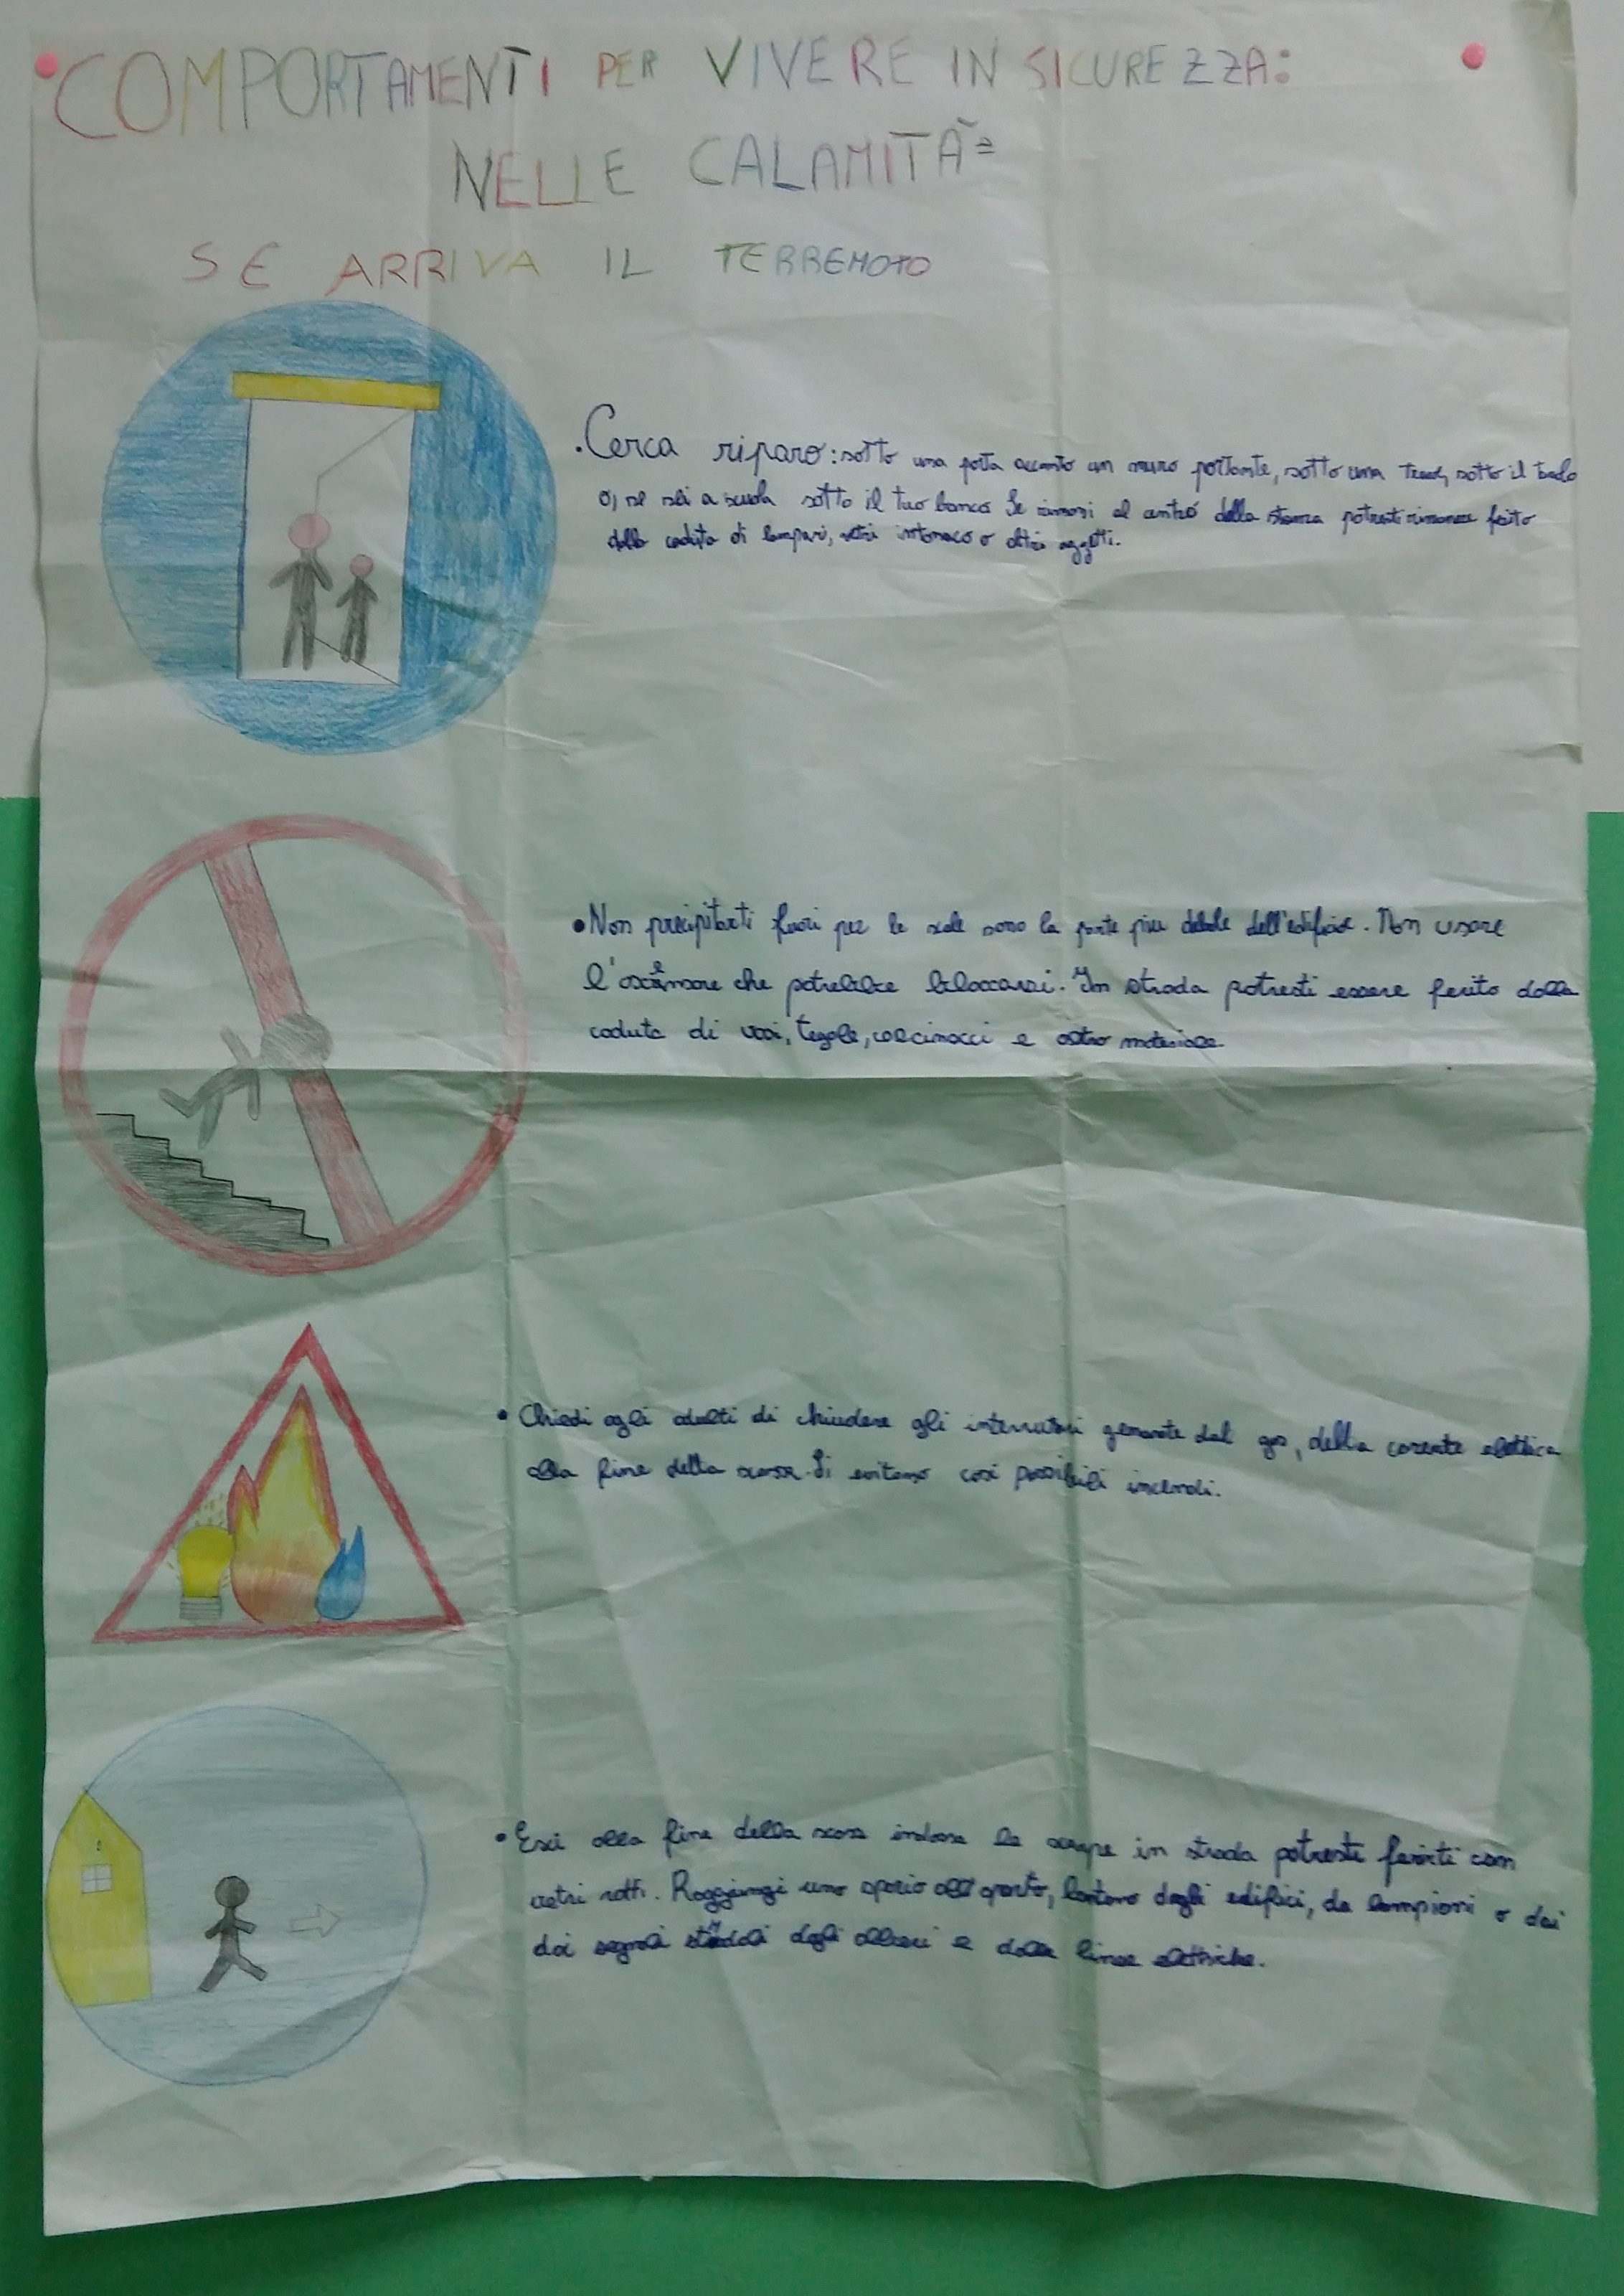 COMPORTAMENTI PER VIVERE IN SICUREZZA:
NELLE CALAMITÀ
SE ARRIVA IL TERREMOTO
.Cerca riparo: sotto una porta accanto un muro portante, sotto una trave, sotto il
o, se sei a scuola sotto il tuo banco Se rimani al centro della stanza potresti rimanere ferito
dalla caduta di lampari, vetri intonaco o altri oggetti.
•Non precipitarti fuori per le scale sono la parte piu debole dell'edificio. Non usare
l'ascensore che potrebbe bloccarsi. In strada potresti essere ferito dalla
caduta di vasi, tegole, calcinacci e altro materiale
• Chiedi agli adulti di chiudere gli interruttori del gas, della corente elettrica
alla fine della scossa. Si evitano cosi possibili incendi.
• Esci alla fine della scossa indossa le scarpe in strada potresti ferirti con
vetri rotti. Raggiungi uno spazio all'aperto, lontano dagli edifici, da lampioni o dai
dai segnali stradali dagli alberi e dalle linee elettriche.